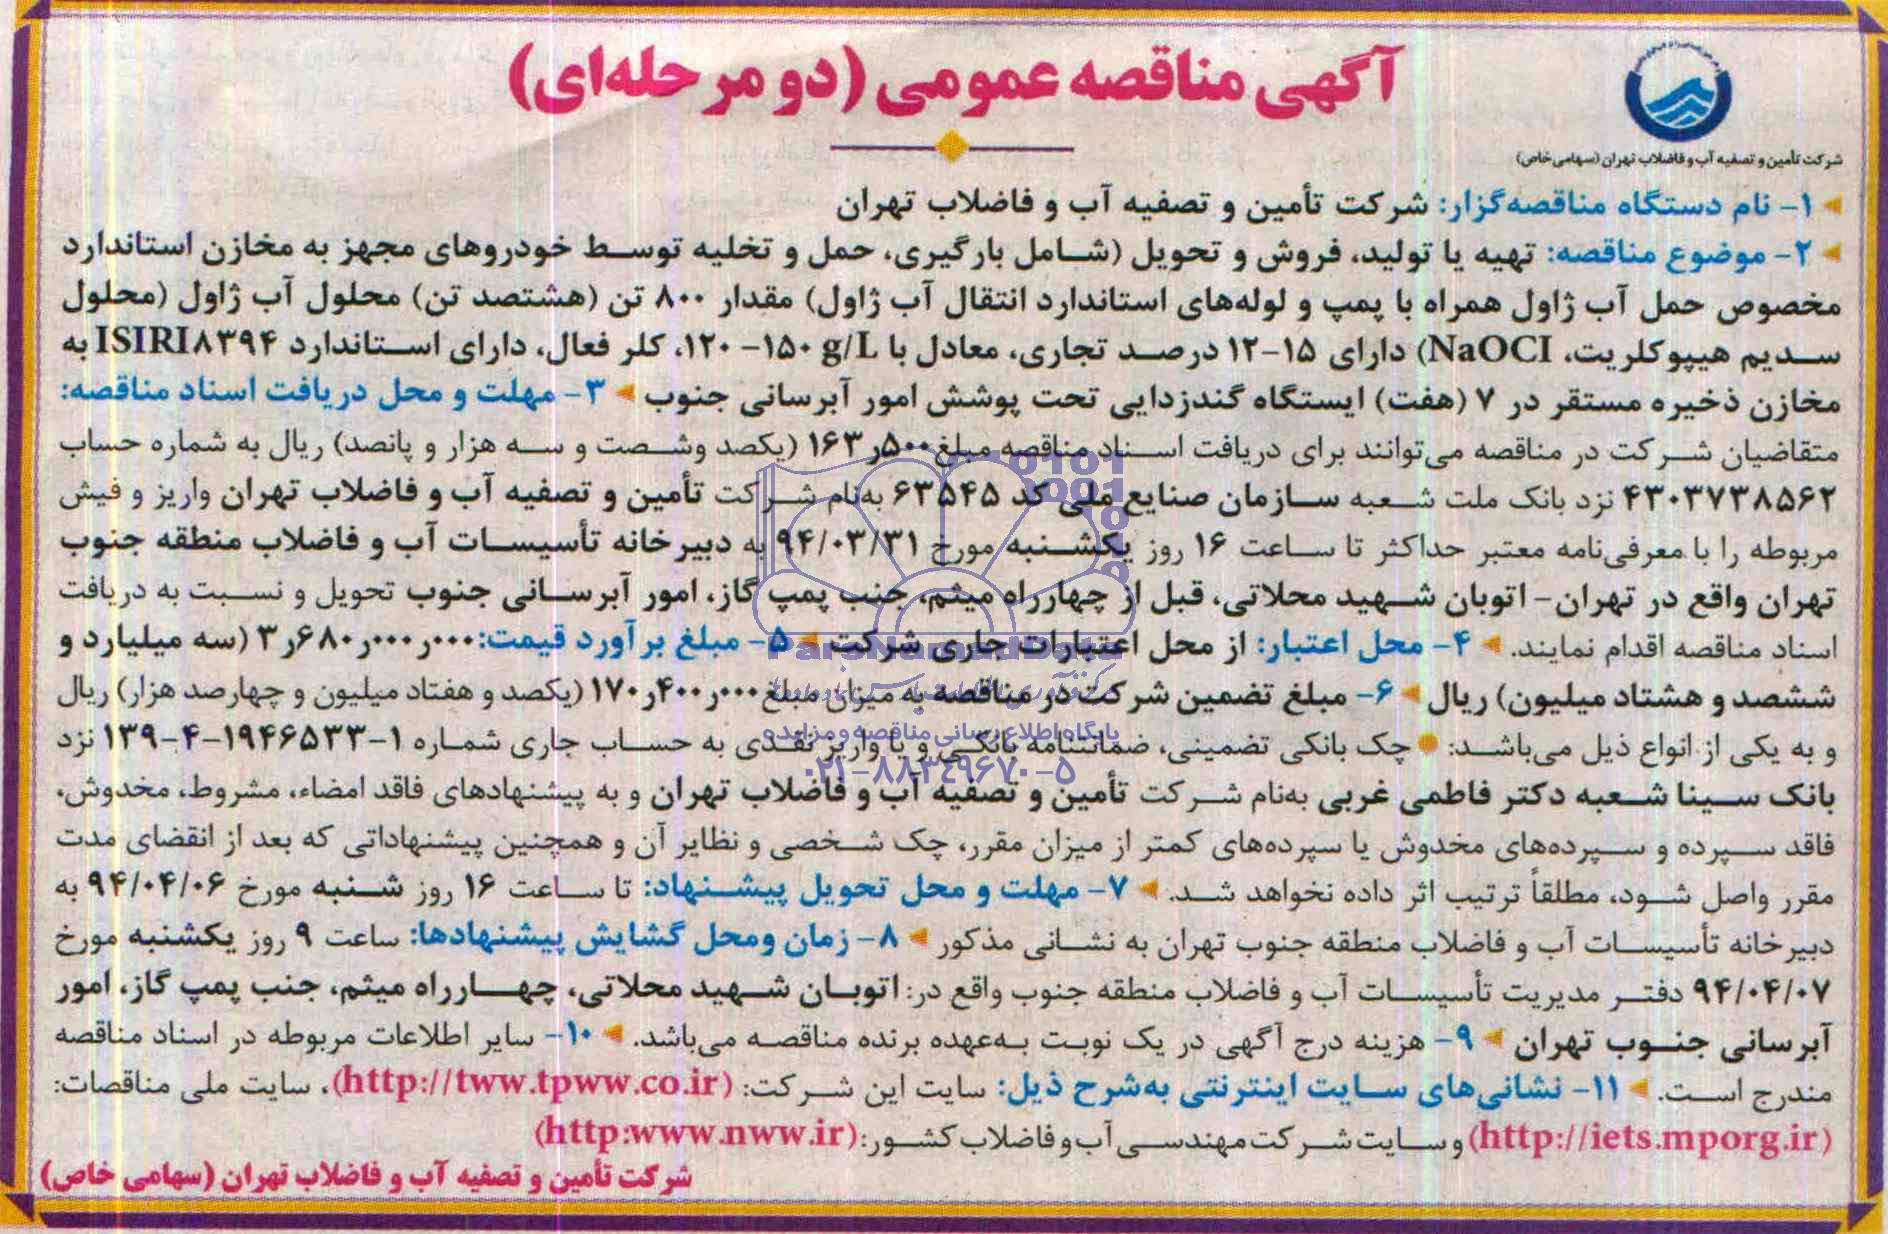 آگهی مناقصه عمومی (دو مرحله‌ای)
شرکت تأمین و تصفیه آب و فاضلاب تهران (سهامی خاص)
۱- نام دستگاه مناقصه‌گزار: شرکت تأمین و تصفیه آب و فاضلاب تهران
۲- موضوع مناقصه: تهیه یا تولید، فروش و تحویل (شامل بارگیری، حمل و تخلیه توسط خودروهای مجهز به مخازن استاندارد
مخصوص حمل آب ژاول همراه با پمپ و لوله‌های استاندارد انتقال آب ژاول) مقدار ۸۰۰ تن (هشتصد تن) محلول آب ژاول (محلول
سدیم هیپوکلریت، NaOCI) دارای ۱۵-۱۲ درصد تجاری، معادل با g/L ۱۵۰-۱۲۰، کلر فعال، دارای استاندارد ISIRI۸۳۹۴ به
مخازن ذخیره مستقر در ۷ (هفت) ایستگاه گندزدایی تحت پوشش امور آبرسانی جنوب ۳- مهلت و محل دریافت اسناد مناقصه:
متقاضیان شرکت در مناقصه می‌توانند برای دریافت اسناد مناقصه مبلغ ۵۰۰ر۱۶۳ (یکصد وشصت و سه هزار و پانصد) ریال به شماره حساب
۴۳۰۳۷۳۸۵۶۲ نزد بانک ملت شعبه سازمان صنایع ملی کد ۶۳۵۴۵ به‌نام شرکت تأمین و تصفیه آب و فاضلاب تهران واریز و فیش
مربوطه را با معرفی‌نامه معتبر حداکثر تا ساعت ۱۶ روز یکشنبه مورخ ۹۴/۰۳/۳۱ به دبیرخانه تأسیسات آب و فاضلاب منطقه جنوب
تهران واقع در تهران- اتوبان شهید محلاتی، قبل از چهارراه میثم، جنب پمپ گاز، امور آبرسانی جنوب تحویل و نسبت به دریافت
اسناد مناقصه اقدام نمایند. ۴- محل اعتبار: از محل اعتبارات جاری شرکت ۵- مبلغ برآورد قیمت: ۰۰۰ر۰۰۰ر۶۸۰ر۳ (سه میلیارد و
ششصد و هشتاد میلیون) ریال ۶- مبلغ تضمین شرکت در مناقصه به میزان مبلغ ۰۰۰ر۴۰۰ر۱۷۰ (یکصد و هفتاد میلیون و چهارصد هزار) ریال
و به یکی از انواع ذیل می‌باشد: چک بانکی تضمینی، ضمانتنامه بانکی و یا واریز نقدی به حساب جاری شماره ۱-۱۹۴۶۵۳۳-۴-۱۳۹ نزد
بانک سینا شعبه دکتر فاطمی غربی به‌نام شرکت تأمین و تصفیه آب و فاضلاب تهران و به پیشنهادهای فاقد امضاء، مشروط، مخدوش،
فاقد سپرده و سپرده‌های مخدوش یا سپرده‌های کمتر از میزان مقرر، چک شخصی و نظایر آن و همچنین پیشنهاداتی که بعد از انقضای مدت
مقرر واصل شود، مطلقاً ترتیب اثر داده نخواهد شد. ۷- مهلت و محل تحویل پیشنهاد: تا ساعت ۱۶ روز شنبه مورخ ۹۴/۰۴/۰۶ به
دبیرخانه تأسیسات آب و فاضلاب منطقه جنوب تهران به نشانی مذکور ۸- زمان ومحل گشایش پیشنهادها: ساعت ۹ روز یکشنبه مورخ
۹۴/۰۴/۰۷ دفتر مدیریت تأسیسات آب و فاضلاب منطقه جنوب واقع در: اتوبان شهید محلاتی، چهارراه میثم، جنب پمپ گاز، امور
آبرسانی جنوب تهران ۹- هزینه درج آگهی در یک نوبت به‌عهده برنده مناقصه می‌باشد. ۱۰- سایر اطلاعات مربوطه در اسناد مناقصه
مندرج است. ۱۱- نشانی‌های سایت اینترنتی به‌شرح ذیل: سایت این شرکت: (http://tww.tpww.co.ir)، سایت ملی مناقصات:
(http://iets.mporg.ir) و سایت شرکت مهندسی آب و فاضلاب کشور: (http:www.nww.ir)
شرکت تأمین و تصفیه آب و فاضلاب تهران (سهامی خاص)
ParsNamadData
پایگاه اطلاع رسانی مناقصه و مزایده
۰۲۱-۸۸۳۴۹۶۷۰-۵